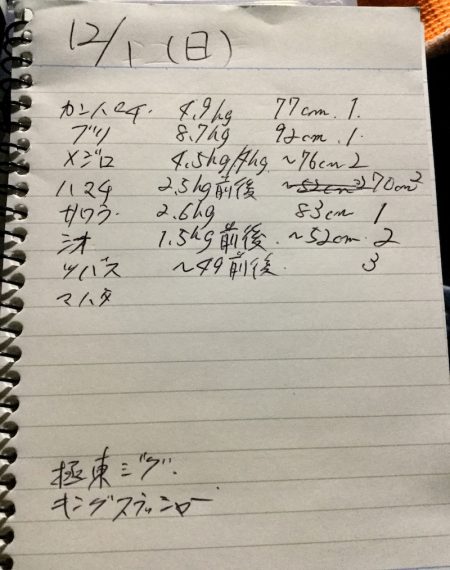 12/1 (日)
カンパチ. 4.9kg 77cm. 1.
ブリ 8.7kg 92cm. 1.
メジロ 4.5kg/4kg ~76cm 2
ハマチ 2.5kg前後 70cm 2
サワラ 2.6kg 83cm 1
シオ 1.5kg前後 ~52cm. 2
ツバス ~49前後. 3
マハタ
極東ジグ.
キングスラッシャー